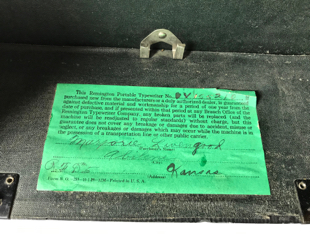 This Remington Portable Typewriter No.
purchased new from the manufacturers or a duly authorized dealer, is guaranteed
against defective material and workmanship for a period of one year from the
date of purchase, and if presented within that period at any Branch Office of the
Remington Typewriter Company, any broken parts will be replaced (and the
machine will be readjusted to regular standards) without charge, but this
guarantee does not cover any breakage or damages due to accident, misuse or
neglect, or any breakages or damages which may occur while the machine is in
the possession of a transportation line or other public carrier.
Marjorie Livengood
Kansas
(Address)
Printed in U. S. A.